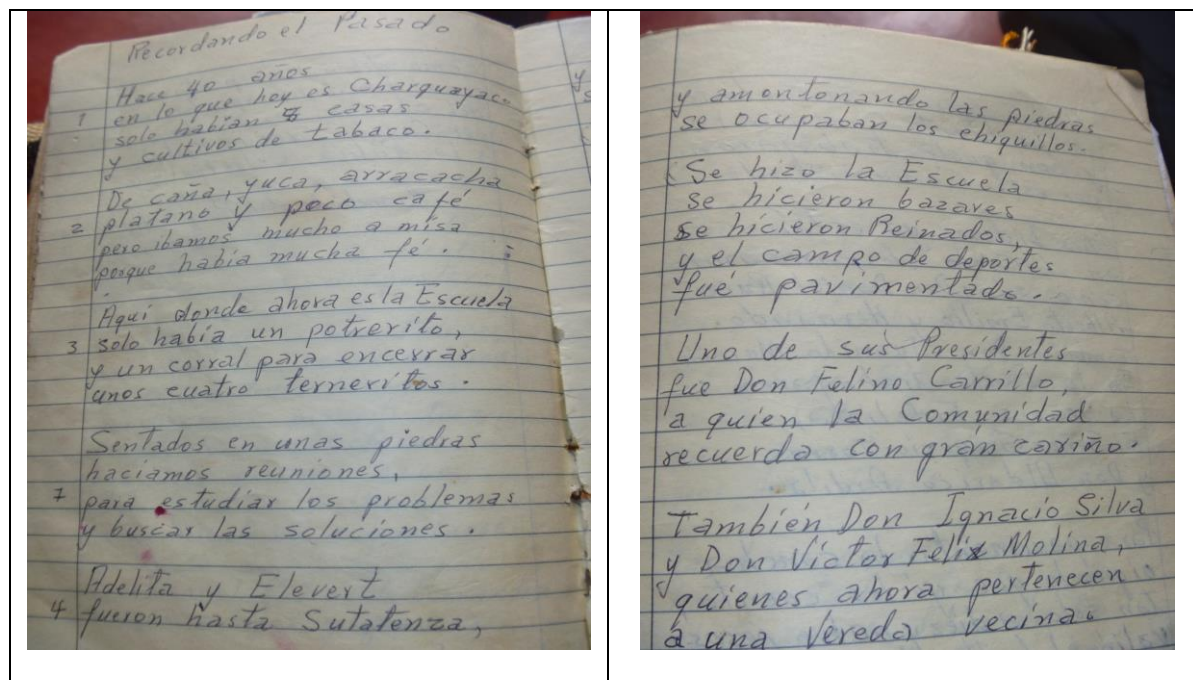 Recordando el Pasado
Hace 40 años
1 en lo que hoy es Charguayaco
solo habian 8 casas
y cultivos de tabaco.
De caña, yuca, arracacha
2 platano y poco café
pero ibamos mucho a misa
porque habia mucha fé.
Aqui donde ahora es la Escuela
3 solo habia un potrerito,
y un corral para encerrar
unos cuatro terneritos.
Sentados en unas piedras
haciamos reuniones,
7 para estudiar los problemas
y buscar las soluciones.
Adelita y Elevert
4 fueron hasta Sutatenza,
y amontonando las piedras
se ocupaban los chiquillos.
Se hizo la Escuela
se hicieron bazares
se hicieron Reinados,
y el campo de deportes
fué pavimentado.
Uno de sus Presidentes
fue Don Felino Carrillo,
a quien la Comunidad
recuerda con gran cariño.
También Don Ignacio Silva
y Don Victor Felix Molina,
quienes ahora pertenecen
a una Vereda vecina.